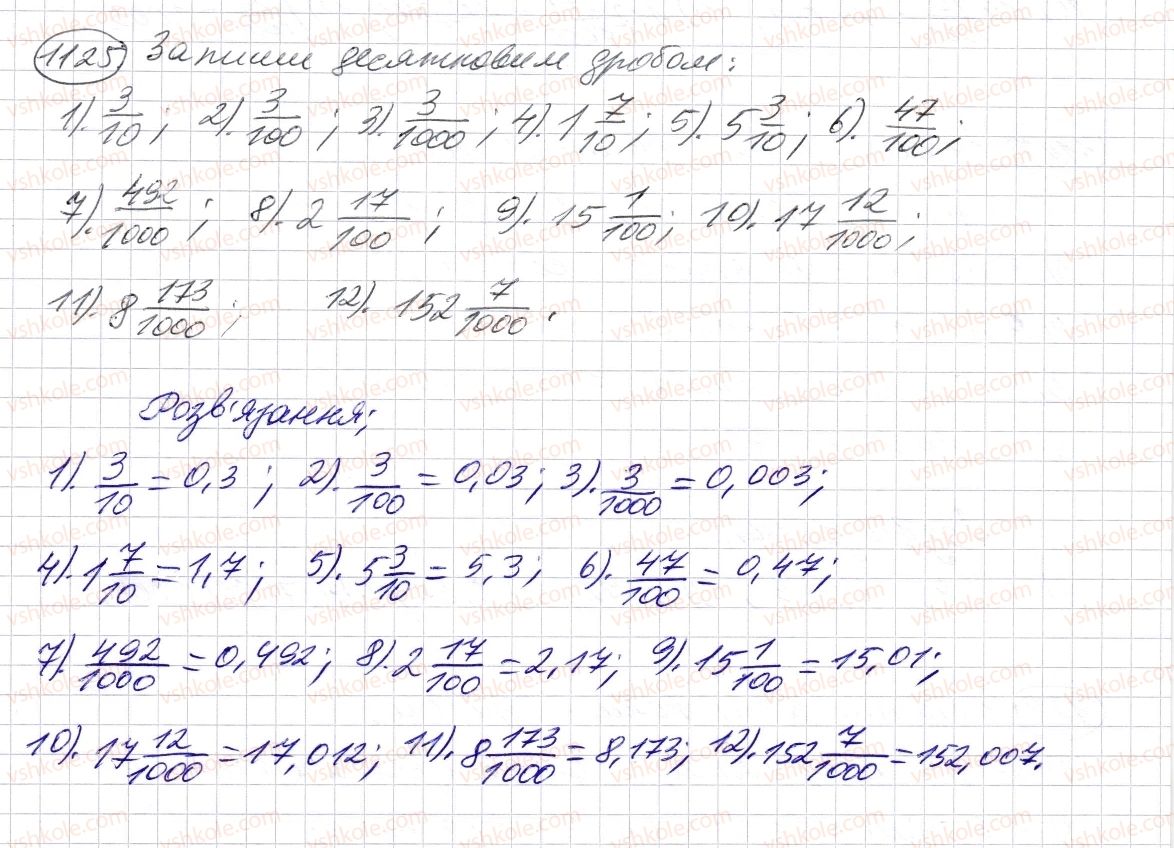 1125) Запиши десятковим дробом:
1). 3/10; 2). 3/100; 3). 3/1000; 4). 1 7/10; 5). 5 3/10; 6). 47/100;
7). 492/1000; 8). 2 17/100; 9). 15 1/100; 10). 17 12/1000;
11). 8 173/1000; 12). 152 7/1000.
Розв'язання;
1). 3/10 = 0,3; 2). 3/100 = 0,03; 3). 3/1000 = 0,003;
4). 1 7/10 = 1,7; 5). 5 3/10 = 5,3; 6). 47/100 = 0,47;
7). 492/1000 = 0,492; 8). 2 17/100 = 2,17; 9). 15 1/100 = 15,01;
10). 17 12/1000 = 17,012; 11). 8 173/1000 = 8,173; 12). 152 7/1000 = 152,007.
vshkole.com